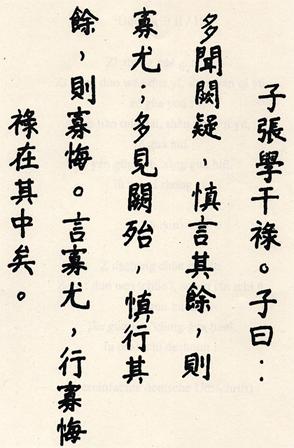 子張學干祿。子曰：
多聞闕疑，慎言其餘，則
寡尤多見闕殆，慎行其
餘，則寡悔。言寡尤，行寡悔
祿在其中矣。